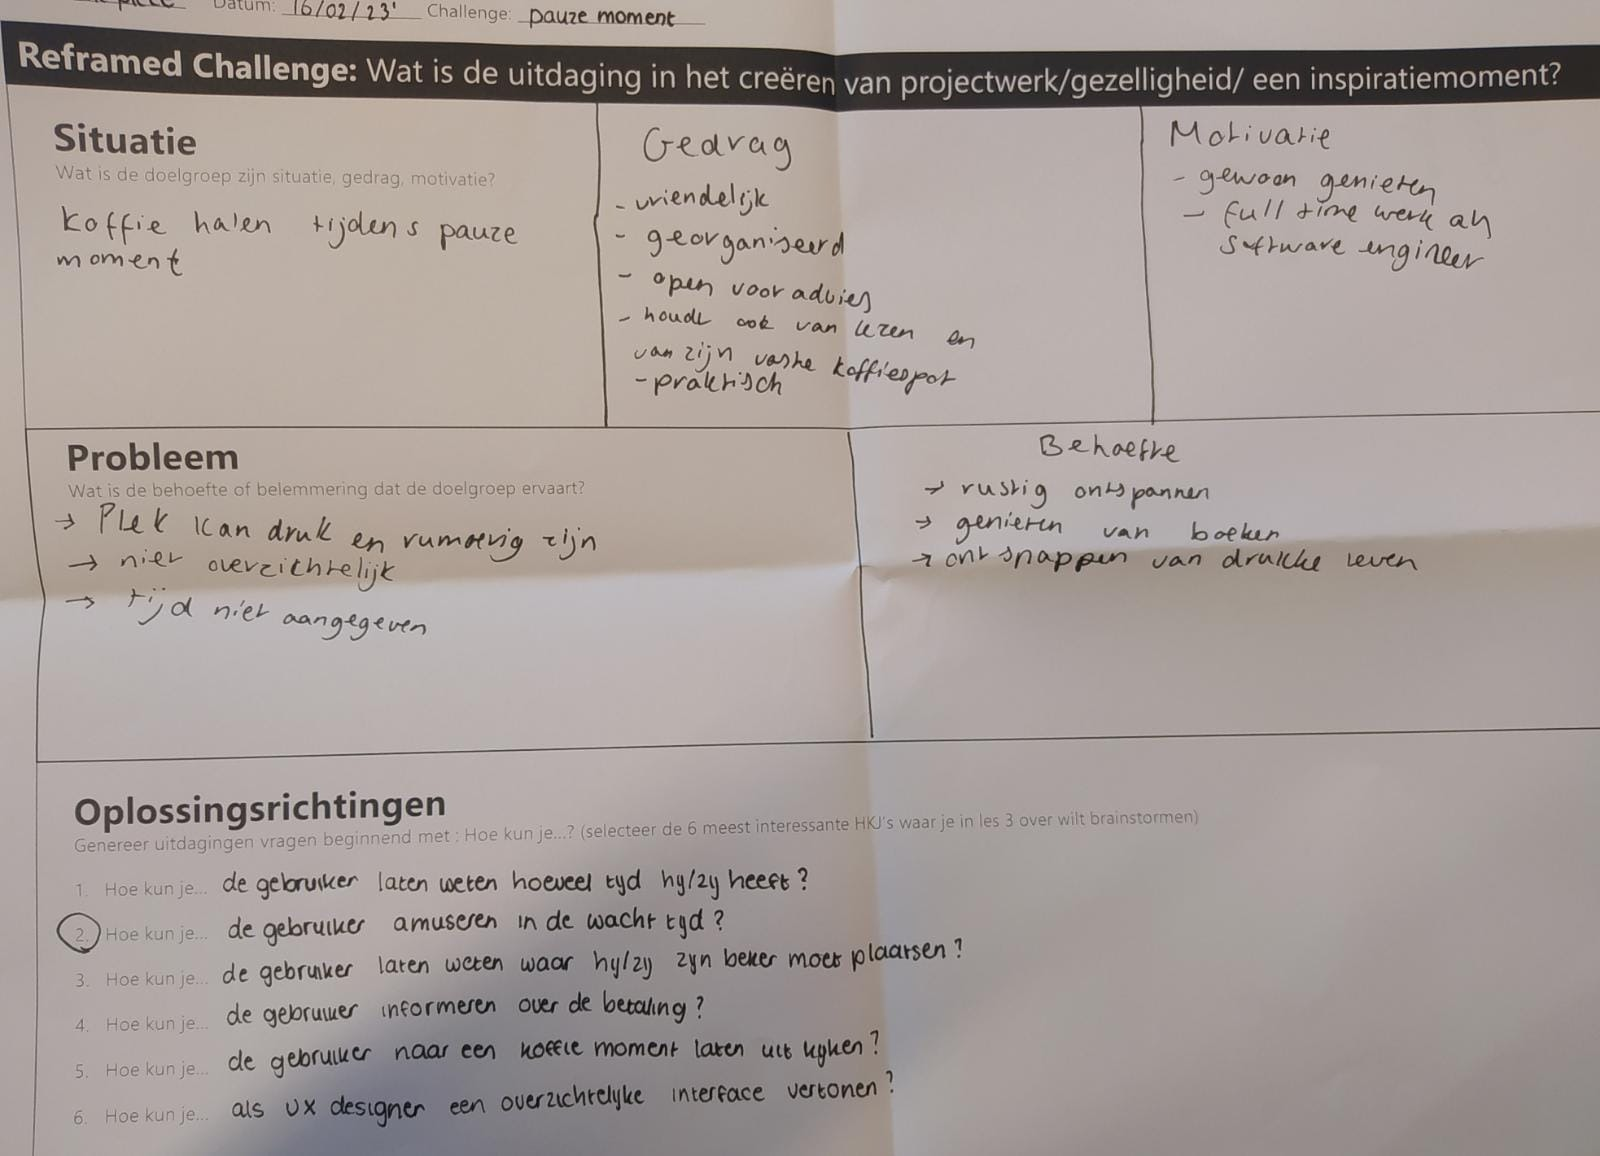 Datum: 16/02/23' Challenge: pauze moment
Reframed Challenge: Wat is de uitdaging in het creëren van projectwerk/gezelligheid/ een inspiratiemoment?
Situatie
Wat is de doelgroep zijn situatie, gedrag, motivatie?
koffie halen tijdens pauze
moment
Gedrag
- vriendelijk
- georganiseerd
- open voor advies
- houdt ook van lezen en
van zijn vaste koffiespot
- praktisch
Motivatie
- gewoon genieten
- full time werk als
software engineer
Probleem
Wat is de behoefte of belemmering dat de doelgroep ervaart?
→ Plek kan druk en rumoerig zijn
→ niet overzichtelijk
→ tijd niet aangegeven
Behoefte
→ rustig ontspannen
→ genieten van boeken
→ ontsnappen van drukke leven
Oplossingsrichtingen
Genereer uitdagingen vragen beginnend met : Hoe kun je...? (selecteer de 6 meest interessante HKJ's waar je in les 3 over wilt brainstormen)
1. Hoe kun je... de gebruiker laten weten hoeveel tyd hy/zy heeft?
2. Hoe kun je... de gebruiker amuseren in de wacht tyd?
3. Hoe kun je... de gebruiker laten weten waar hy/zy zyn beker moet plaatsen?
4. Hoe kun je... de gebruiker informeren over de betaling?
5. Hoe kun je... de gebruiker naar een koffie moment laten uit kyken?
6. Hoe kun je... als UX designer een overzichtelyke interface vertonen?